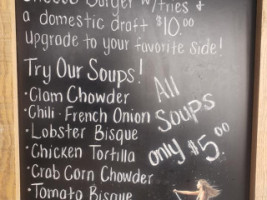 Cheese Burger w/fries &
a domestic draft $10.00
upgrade to your favorite side!
Try Our Soups!
• Clam Chowder
• Chili • French Onion
• Lobster Bisque
• Chicken Tortilla
• Crab Corn Chowder
• Tomato Bisque
All
Soups
only $5.00